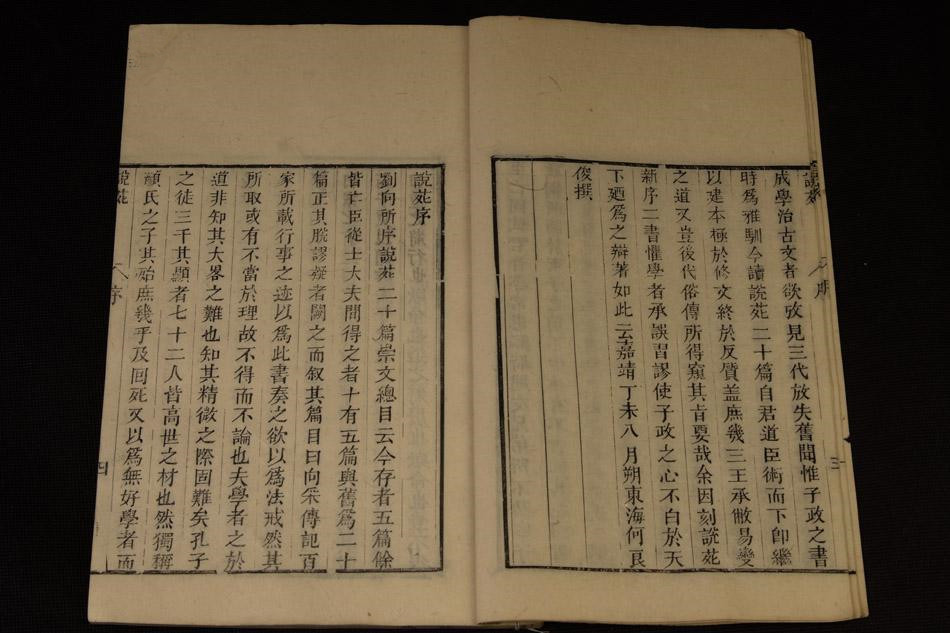 說苑
序
三
成學治古文者欲攷見三代放失舊聞惟子政之書
時爲雅馴今讀說苑二十篇自君道臣術而下卽繼
以建本極於修文終於反質盖庶幾三王承敝易變
之道又豈後代俗傳所得窺其肯要哉余因刻說苑
新序二書懼學者承誤習謬使子政之心不白於天
下廼爲之辯著如此云嘉靖丁未八月朔東海何良
俊撰
說苑序
劉向所序說苑二十篇崇文總目云今存者五篇餘
皆亡臣從士大夫間得之者十有五篇與舊爲二十
篇正其脫謬疑者闕之而叙其篇目曰向采傳記百
家所載行事之迹以爲此書奏之欲以爲法戒然其
所取或有不當於理故不得而不論也夫學者之於
道非知其大畧之難也知其精微之際固難矣孔子
之徒三千其顯者七十二人皆高世之材也然獨稱
顏氏之子其殆庶幾乎及回死又以爲無好學者而
說苑
序
四